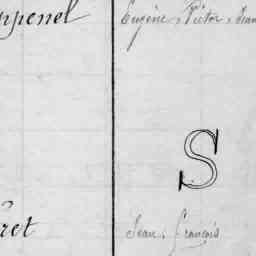 ppenel Eugène, Victor, Jean
S
ret Jean, François